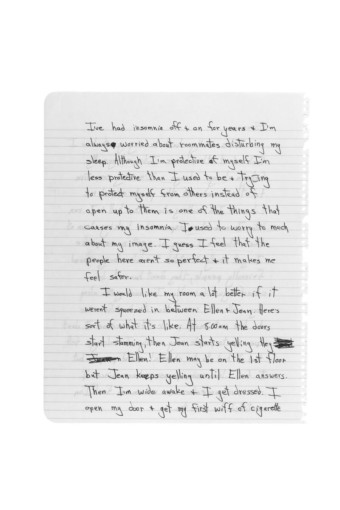 I've had insomnia off & on for years & I'm
always worried about roommates disturbing my
sleep. Although I'm protective of myself I'm
less protective than I used to be & Trying
to protect myself from others instead of
open up to them is one of the things that
causes my insomnia. I used to worry to much
about my image. I guess I feel that the
people here arn't so perfect & it makes me
feel safer.
I would like my room a lot better if it
weren't squeezed in between Ellen & Jean. Here's
sort of what it's like. At 5:00am the doors
start slamming, then Jean starts yelling Hey
Ellen! Ellen may be on the 1st floor
but Jean keeps yelling until Ellen answers.
Then I'm wide awake & I get dressed. I
open my door & get my first wiff of cigarette